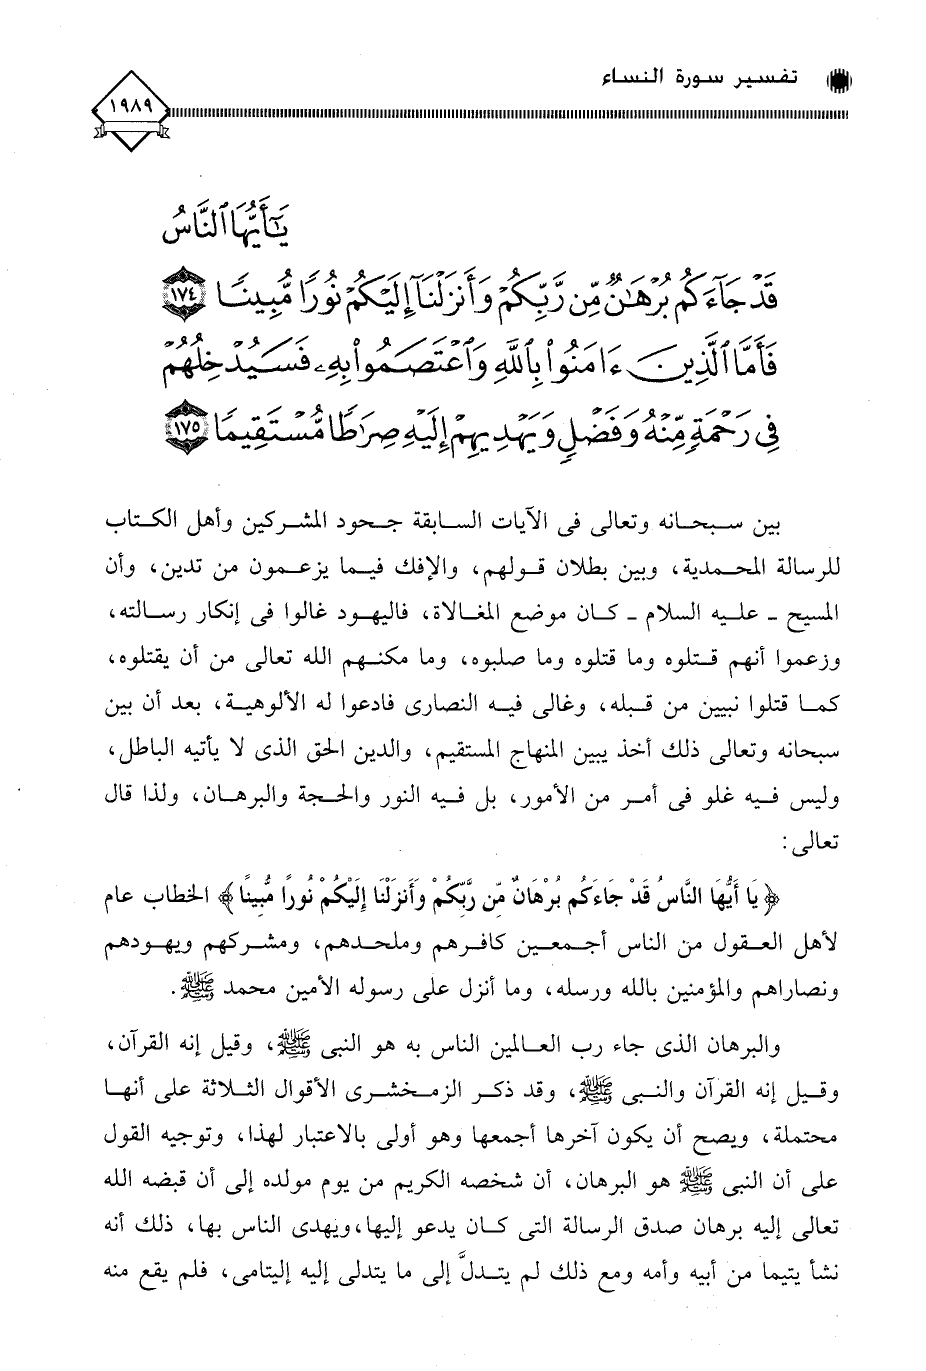 تفسير سورة النساء
١٩٨٩
يَٰٓأَيُّهَا ٱلنَّاسُ
قَدْ جَآءَكُم بُرْهَٰنٌ مِّن رَّبِّكُمْ وَأَنزَلْنَآ إِلَيْكُمْ نُورًا مُّبِينًا ١٧٤
فَأَمَّا ٱلَّذِينَ ءَامَنُوا۟ بِٱللَّهِ وَٱعْتَصَمُوا۟ بِهِۦ فَسَيُدْخِلُهُمْ
فِى رَحْمَةٍ مِّنْهُ وَفَضْلٍ وَيَهْدِيهِمْ إِلَيْهِ صِرَٰطًا مُّسْتَقِيمًا ١٧٥
بين سبحانه وتعالى فى الآيات السابقة جحود المشركين وأهل الكتاب
للرسالة المحمدية، وبين بطلان قولهم، والإفك فيما يزعمون من تدين، وأن
المسيح - عليه السلام - كان موضع المغالاة، فاليهود غالوا فى إنكار رسالته،
وزعموا أنهم قتلوه وما قتلوه وما صلبوه، وما مكنهم الله تعالى من أن يقتلوه،
كما قتلوا نبيين من قبله، وغالى فيه النصارى فادعوا له الألوهية، بعد أن بين
سبحانه وتعالى ذلك أخذ يبين المنهاج المستقيم، والدين الحق الذى لا يأتيه الباطل،
وليس فيه غلو فى أمر من الأمور، بل فيه النور والحجة والبرهان، ولذا قال
تعالى:
﴿يَا أَيُّهَا النَّاسُ قَدْ جَاءَكُم بُرْهَانٌ مِّن رَّبِّكُمْ وَأَنزَلْنَا إِلَيْكُمْ نُورًا مُّبِينًا﴾ الخطاب عام
لأهل العقول من الناس أجمعين كافرهم وملحدهم، ومشركهم ويهودهم
ونصاراهم والمؤمنين بالله ورسله، وما أنزل على رسوله الأمين محمد ﷺ.
والبرهان الذى جاء رب العالمين الناس به هو النبى ﷺ، وقيل إنه القرآن،
وقيل إنه القرآن والنبى ﷺ، وقد ذكر الزمخشرى الأقوال الثلاثة على أنها
محتملة، ويصح أن يكون آخرها أجمعها وهو أولى بالاعتبار لهذا، وتوجيه القول
على أن النبى ﷺ هو البرهان، أن شخصه الكريم من يوم مولده إلى أن قبضه الله
تعالى إليه برهان صدق الرسالة التى كان يدعو إليها،ويهدى الناس بها، ذلك أنه
نشأ يتيما من أبيه وأمه ومع ذلك لم يتدلَّ إلى ما يتدلى إليه إليتامى، فلم يقع منه